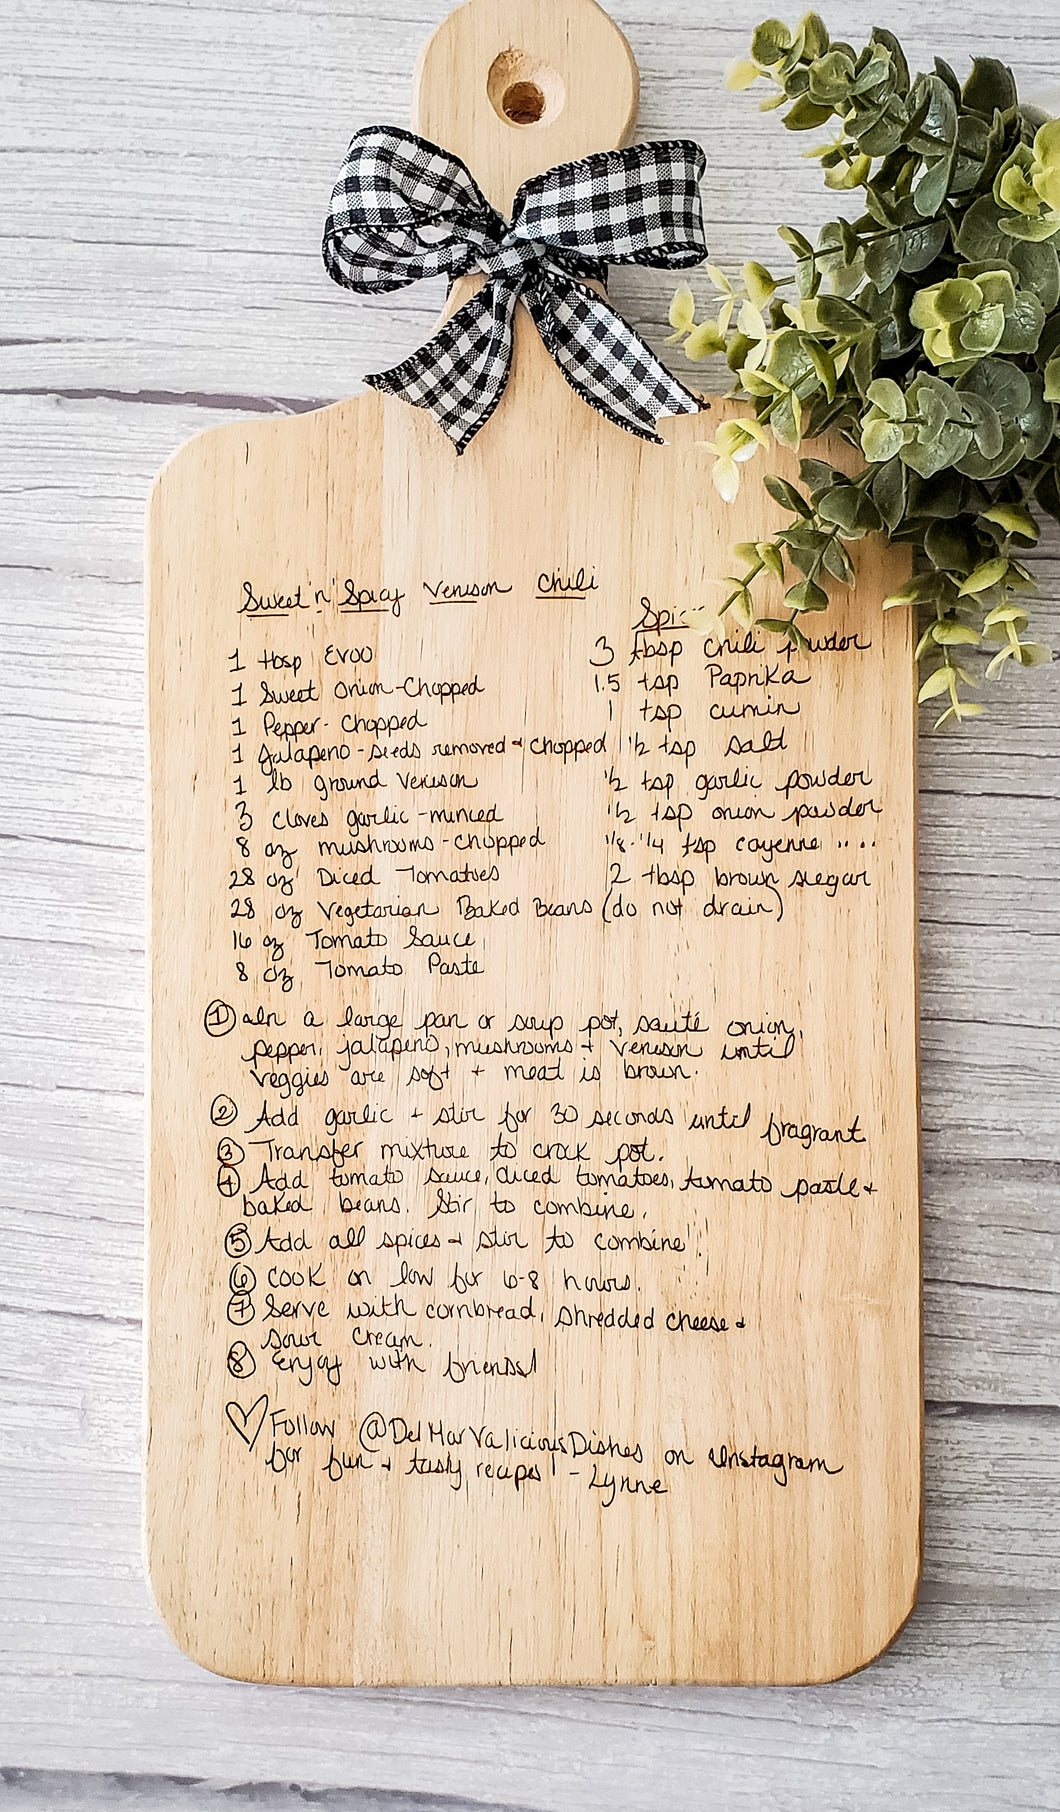 Sweet 'n' Spicy Venison Chili
1 tbsp EVOO
1 Sweet Onion-Chopped
1 Pepper-Chopped
1 Jalapeno-seeds removed + chopped
1 lb ground Venison
3 cloves garlic-minced
8 oz mushrooms-chopped
28 oz Diced Tomatoes
28 oz Vegetarian Baked Beans (do not drain)
16 oz Tomato Sauce
8 oz Tomato Paste
3 tbsp chili powder
1.5 tsp Paprika
1 tsp cumin
1/2 tsp salt
1/2 tsp garlic powder
1/2 tsp onion powder
1/8-1/4 tsp cayenne ....
2 tbsp brown sugar
① In a large pan or soup pot, sauté onion,
pepper, jalapeno, mushrooms + venison until
veggies are soft + meat is brown.
② Add garlic + stir for 30 seconds until fragrant
③ Transfer mixture to crock pot.
④ Add tomato sauce, diced tomatoes, tomato paste +
baked beans. Stir to combine.
⑤ Add all spices + stir to combine.
⑥ Cook on low for 6-8 hours.
⑦ Serve with cornbread, shredded cheese +
sour cream.
⑧ Enjoy with friends!
♡ Follow @DelMarValiciousDishes on Instagram
for fun + tasty recipes! - Lynne